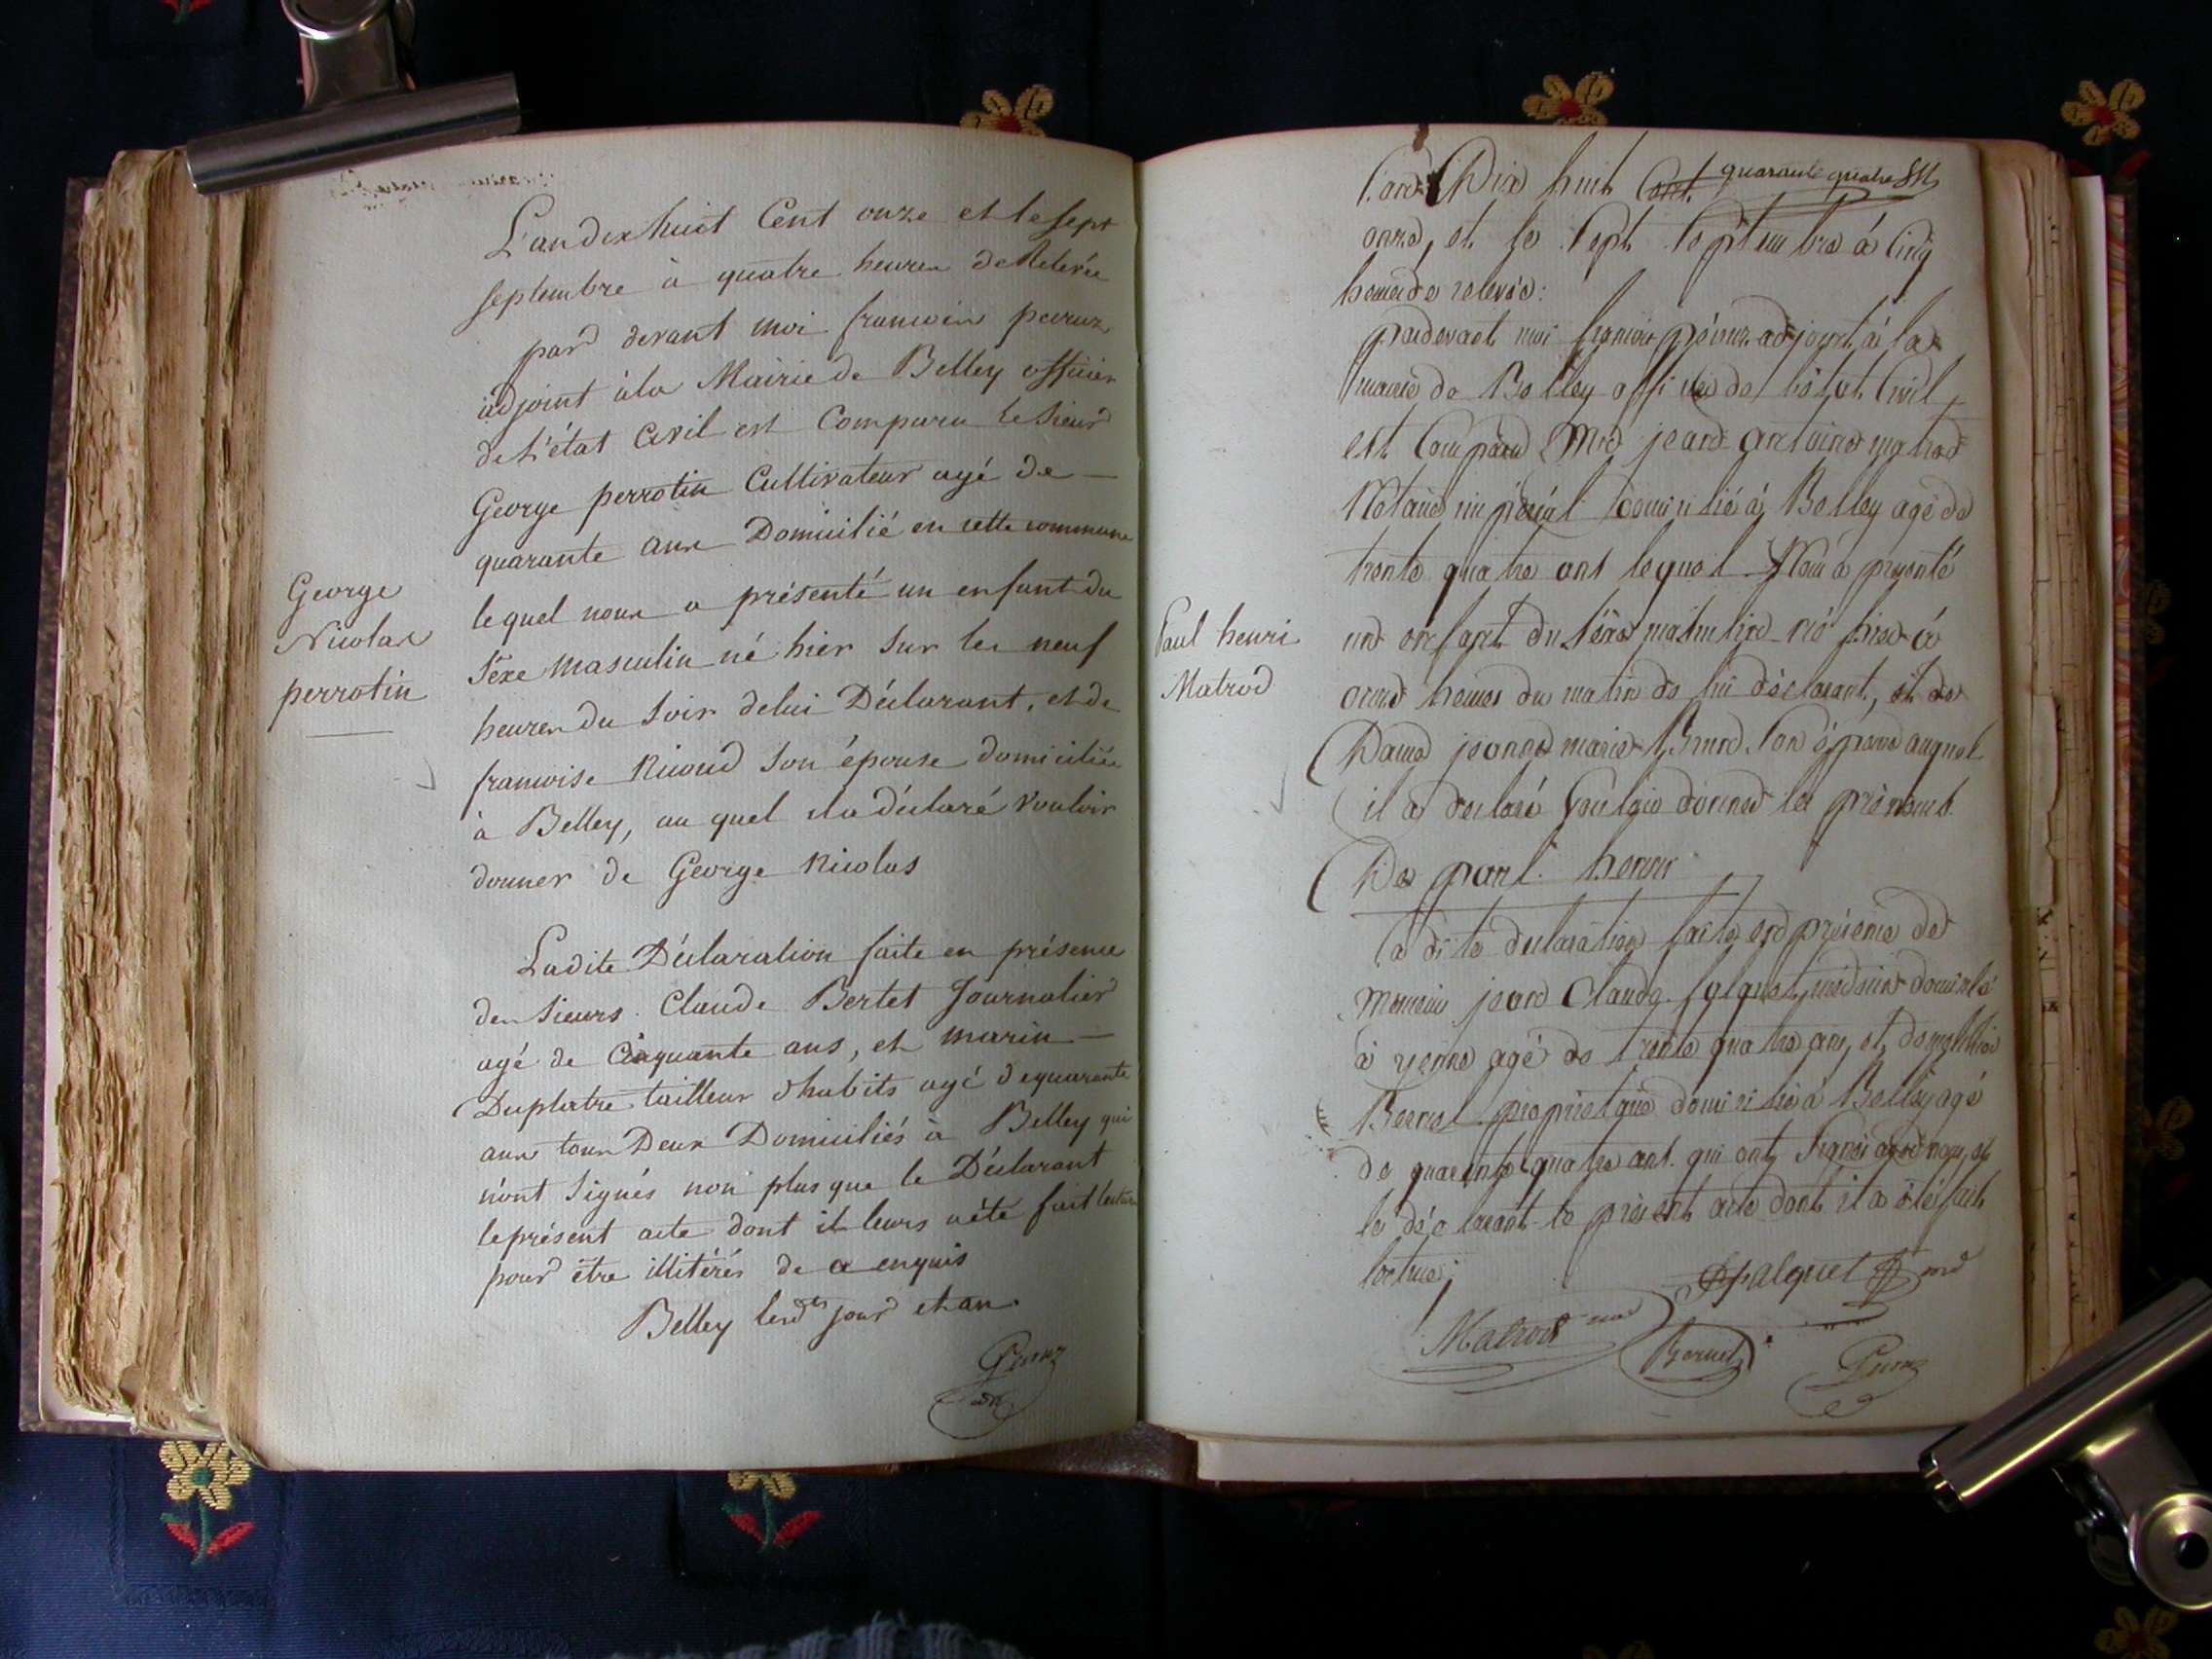 L'an dix huit Cent onze et le sept
septembre à quatre heures de Relevée
pard devant moi francois
adjoint à la Mairie de Belley officier
de L'état Civil est Comparu le Sieur
George perrotin Cultivateur agé de
quarante ans Domicilié en cette commune
George
Nicolas
perrotin
lequel nous a présenté un enfant du
séxe masculin né hier sur les neuf
heures du soir de lui Déclarant, et de
francoise son épouse domiciliée
à Belley, au quel il a déclaré vouloir
donner de George Nicolas
Ladite Déclaration faite en présence
des Sieurs Claude Bertet Journalier
agé de Cinquante ans, et marin
Duplatre tailleur d'habits agé de quarante
ans tous Deux Domiciliés à Belley qui
n'ont signés non plus que le Déclarant
le présent acte dont il leurs a été fait lecture
pour être illitérés de ce enquis
Belley les dts jour et an
quarante quatre
L'an Dix huit Cent
onze, et le sept septembre à cinq
heures de relevée:
pardevant moi francois adjoint à la
mairie de Belley officier de l'état Civil
est Comparu jean antoine matrod
Notaire impérial domicilié à Belley agé de
trente quatre ans lequel Nous a présenté
Paul henri
Matrod
un enfant du séxe masculin né hier à
onze heures du matin de lui déclarant, et de
Dame jeanne marie son épouse auquel
il a déclaré vouloir donner les prénoms
De paul henri
La dite declaration faite en présence de
Messieurs jean Claude médecin domicilié
à yenne agé de trente quatre ans, et
Bernel propriétaire domicilié à Belley agé
de quarante quatre ans qui ont signé avec nous, et
le déclarant le présent acte dont il a été fait
lecture;
Matrod
Bernel